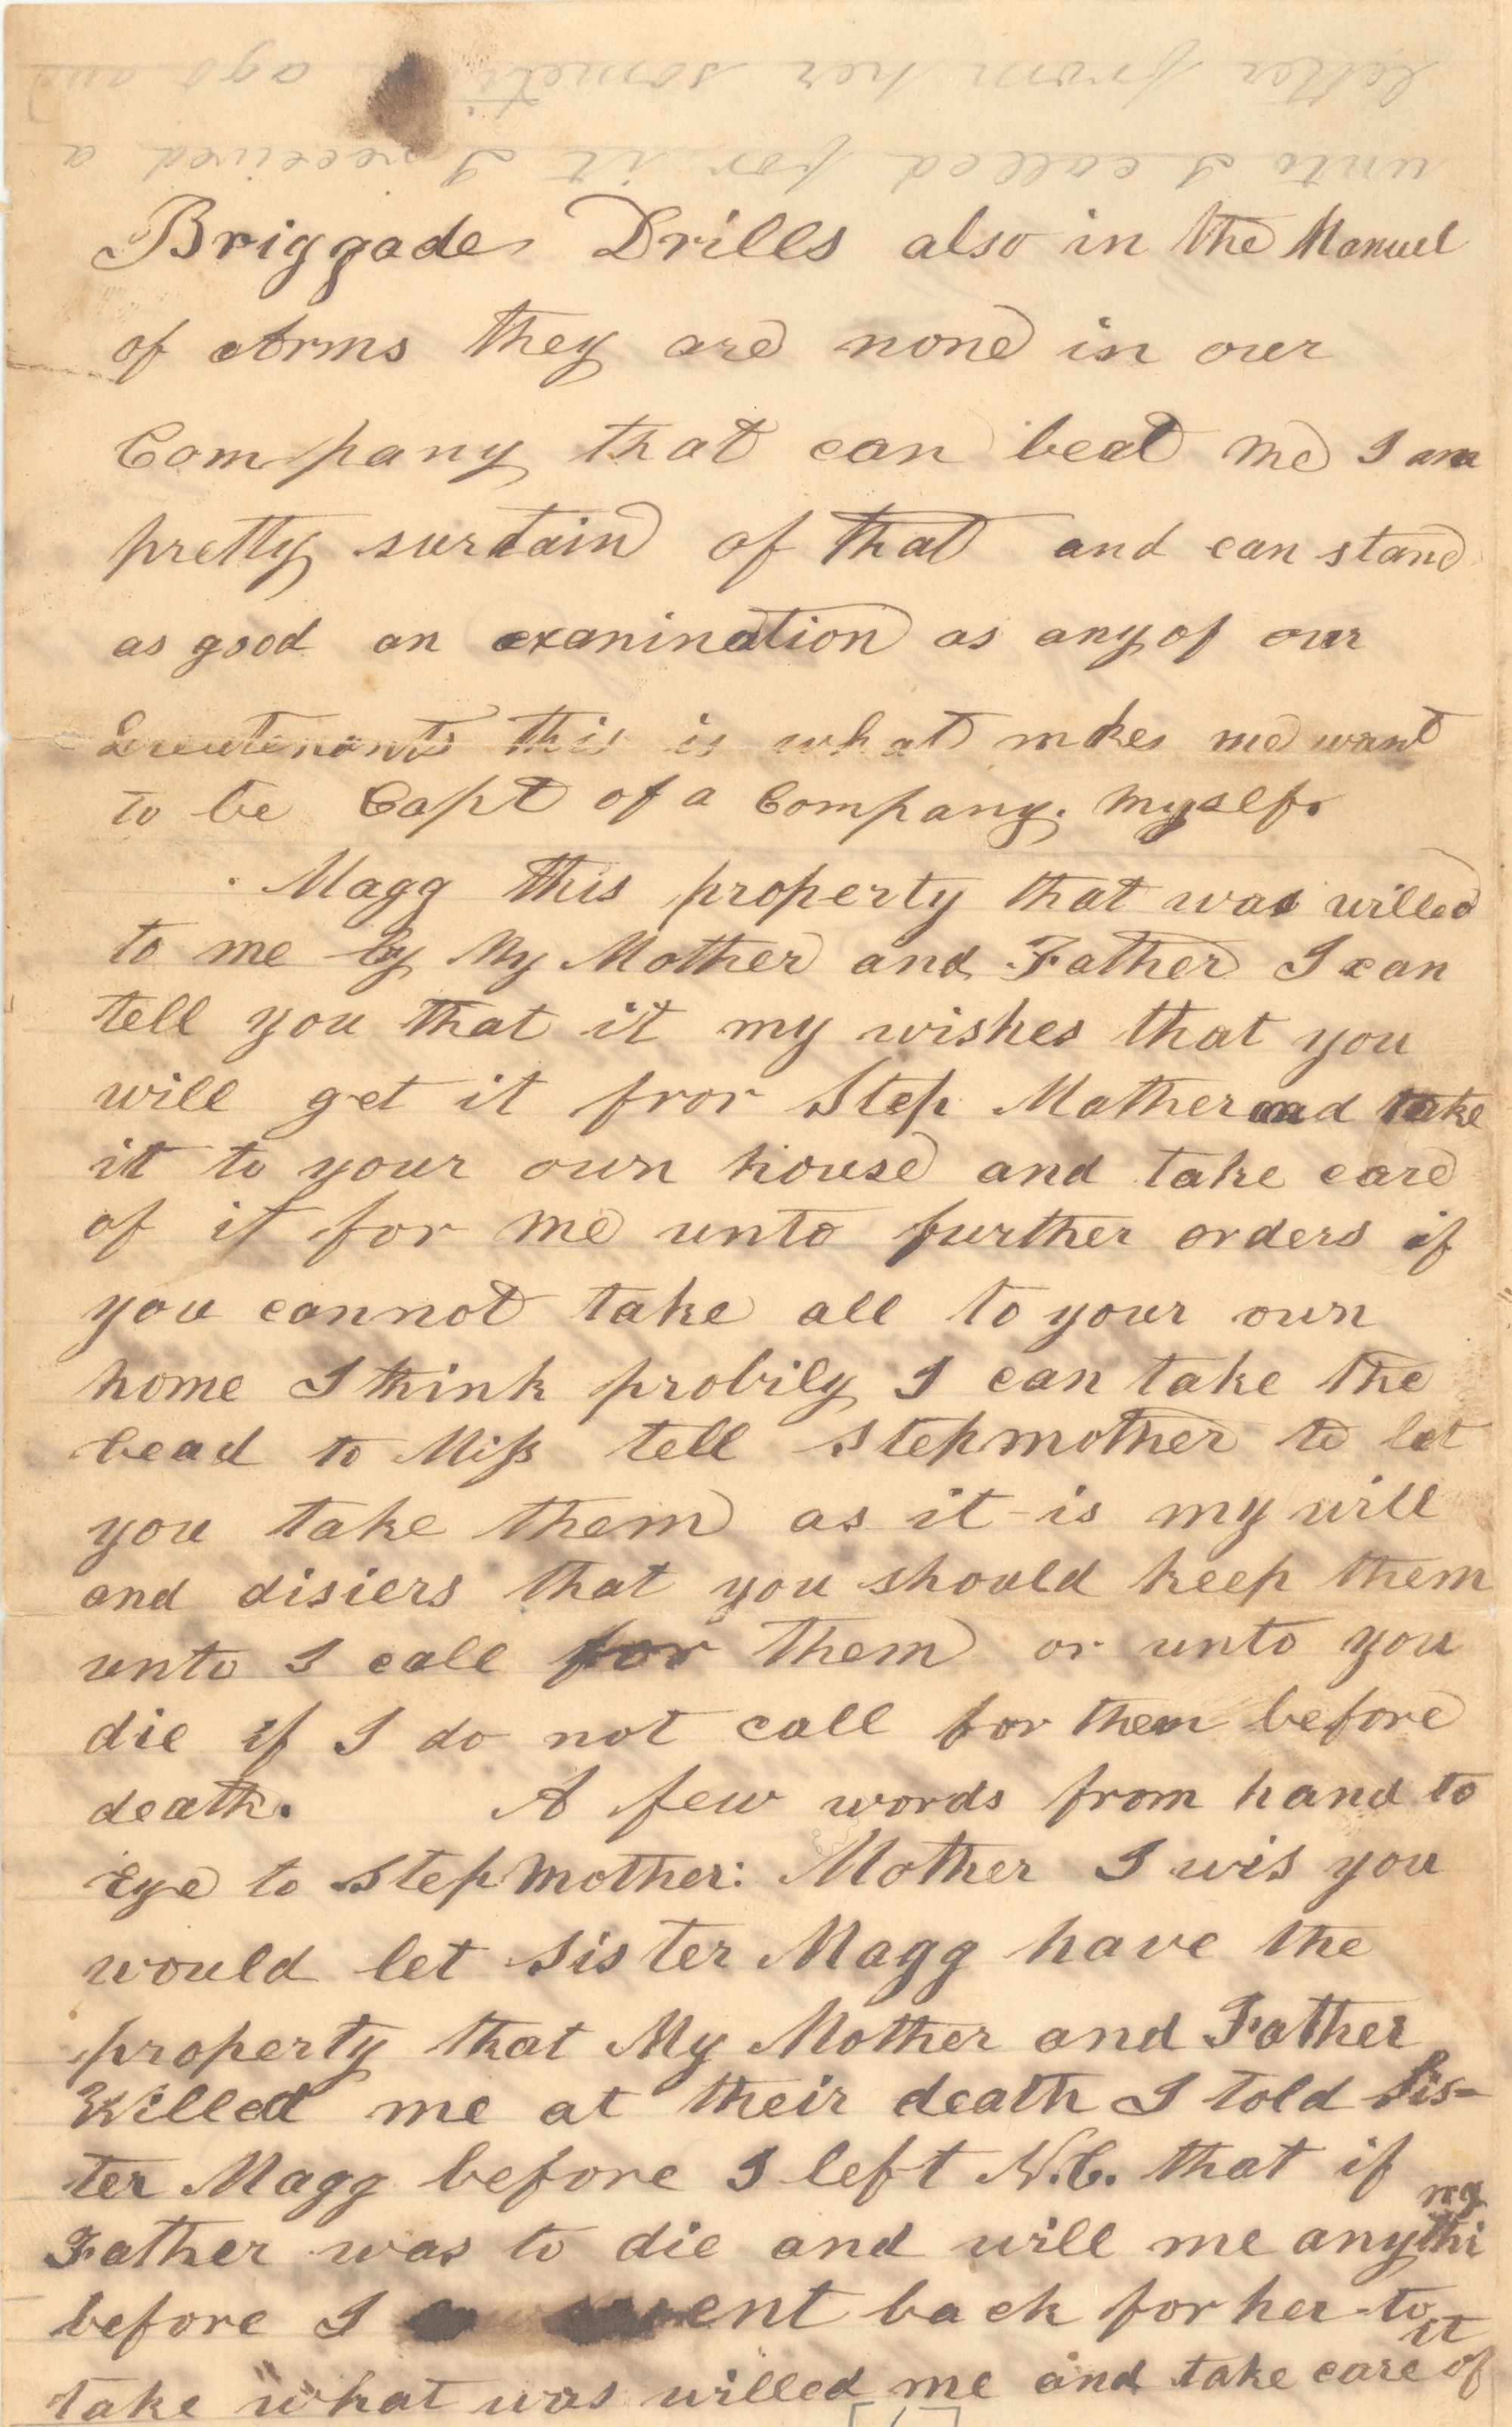 letter from her sometime ago and
unto I called for it I received a
Briggade Drills also in the Manuel
of Arms they are none in our
Company that can beat me I am
pretty surtain of that and can stand
as good an exanination as any of our
Lieutenants this is what mkes me want
to be Capt of a Company. myself.
Magg this property that was willed
to me by My Mother and Father I can
tell you that it my wishes that you
will get it fror Step Mother and take
it to your own house and take care
of it for me unto further orders if
you cannot take all to your own
home I think probily I can take the
bead to Miss tell Stepmother to let
you take them as it is my will
and disiers that you should keep them
unto I call for them or unto you
die if I do not call for them before
death. A few words from hand to
Eye to Stepmother: Mother I wis you
would let Sister Magg have the
property that My Mother and Father
Willed me at their death I told Sis-
ter Magg before I left N.C. that if
Father was to die and will me anything
before I went back for her to
take what was willed me and take care of it